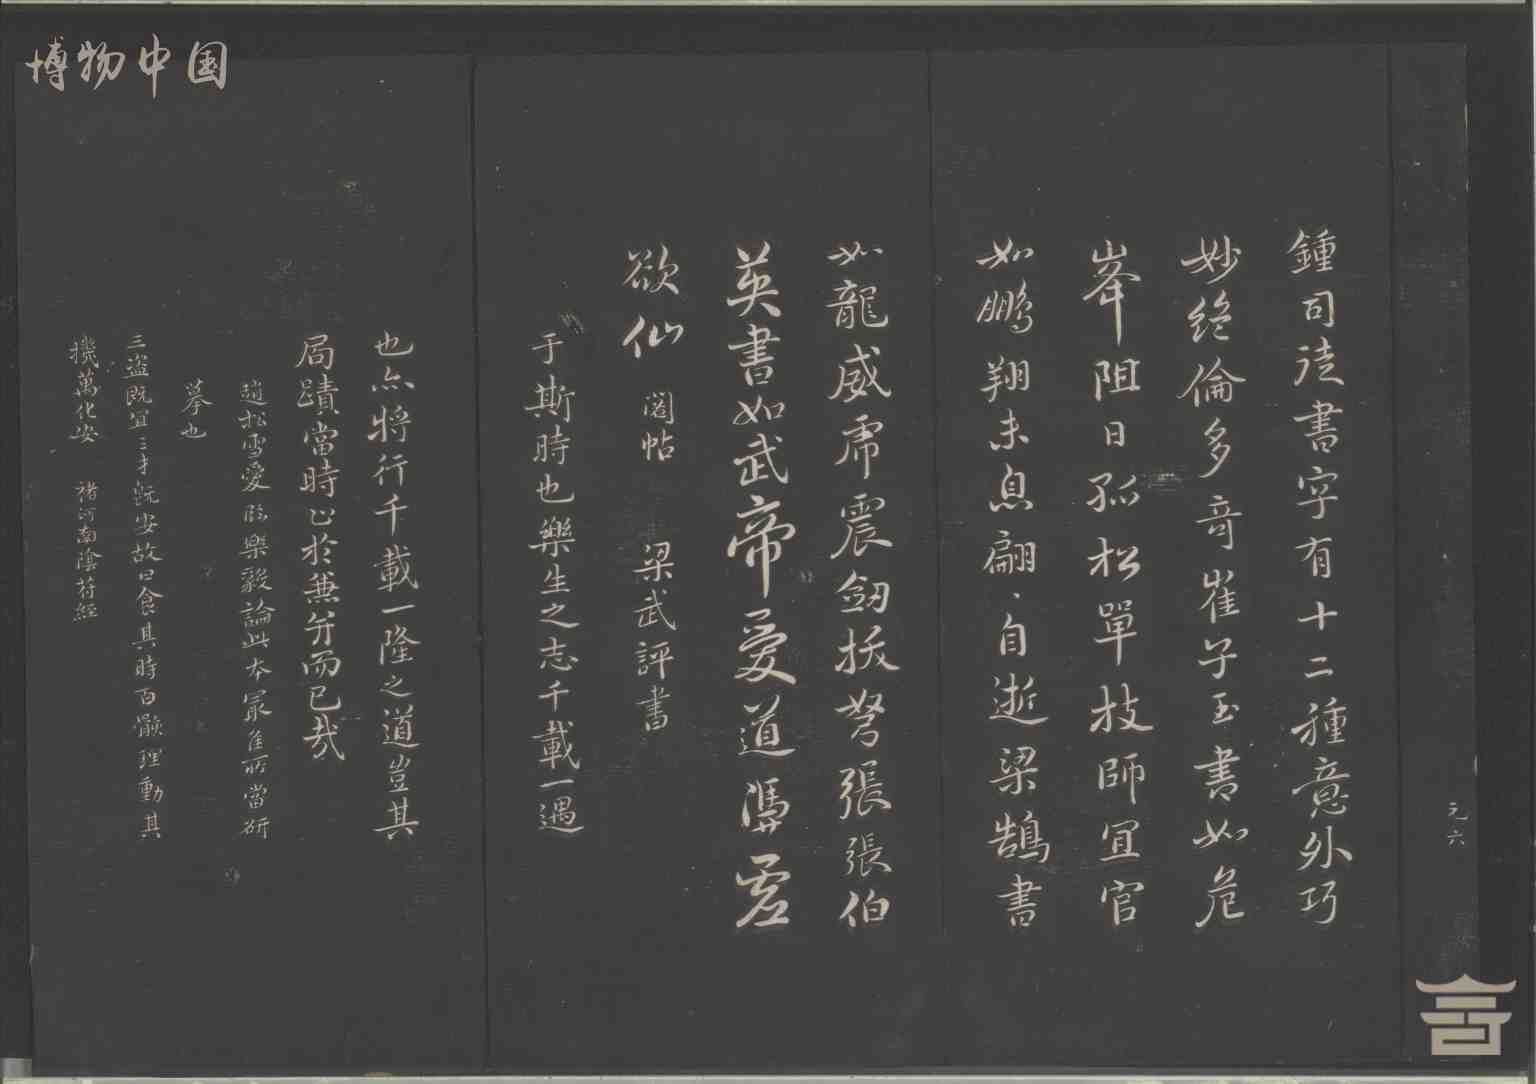 博物中国
元六
鍾司徒書字有十二種意外巧
妙絶倫多奇崔子玉書如危
峯阻日孤松單技師宜官
如鵬翔未息翩、自逝梁鵠書
如龍威虎震劒拔弩張張伯
英書如武帝愛道憑虛
欲仙 閣帖 梁武評書
于斯時也樂生之志千載一遇
也亦將行千載一隆之道豈其
局蹟當時止於兼并而已哉
趙松雪愛臨樂毅論此本最佳所當研
摹也
三盗既宜三才既安故曰食其時百骸理動其
機萬化安 褚河南陰符經